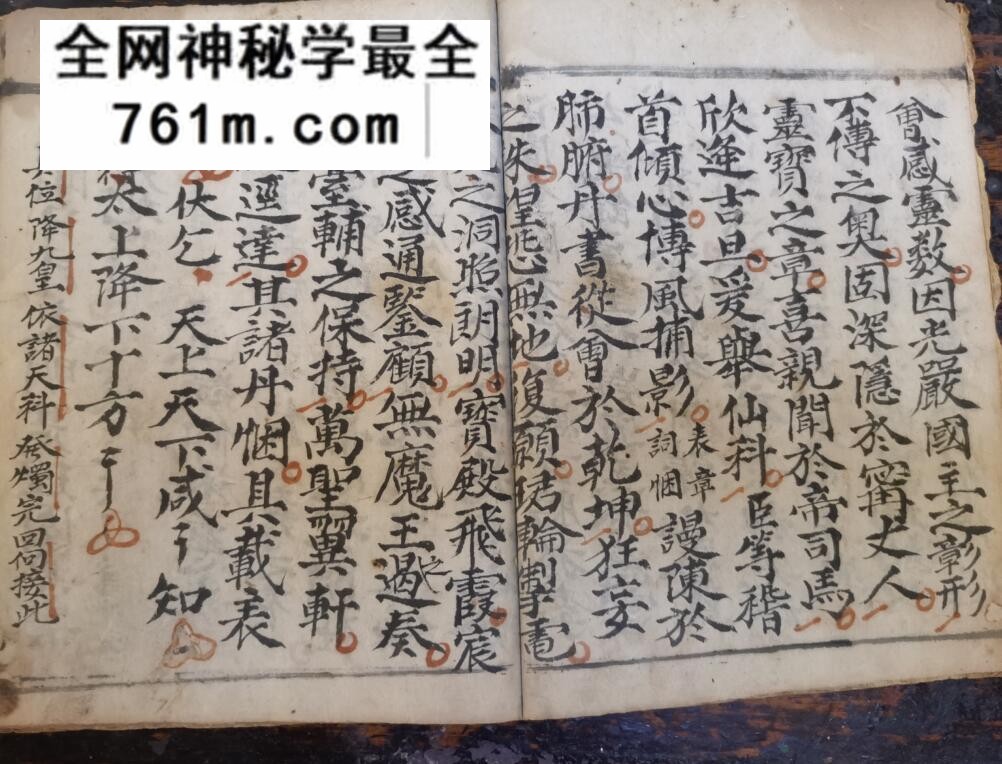 全网神秘学最全
761m.com
會感靈数因光嚴國主之彰形
不傳之奧固深隱於寗丈人
靈寶之章喜親聞於帝司馬
欣逢吉旦爰舉仙科臣等稽
首傾心博風捕影表章詞悃謾陳於
肺腑丹書從會於乾坤狂妄
之誅皇恐無地復願珺輪掣電
之洞照朗明寶殿飛霞宸
感通鑒顧無魔王之遏奏
臺輔之保持萬聖翼軒
逕達其諸丹悃具載表
伏乞天上天下咸知
太上降下十方
位降九皇依諸天科發燭完回向接此